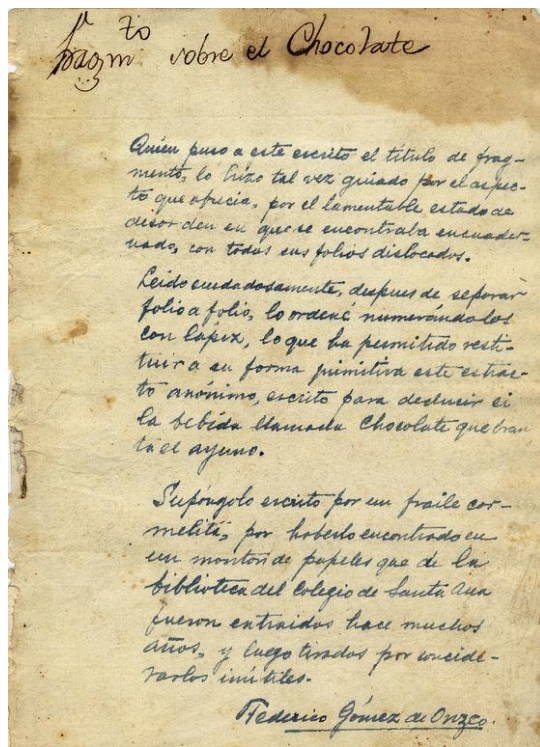 fragm^to sobre el Chocolate
Quien puso a este escrito el título de frag-
mento, lo hizo tal vez guiado por el aspec-
to que ofrecia, por el lamentable estado de
desorden en que se encontraba encuader-
nado, con todos sus folios dislocados.
Leido cuidadosamente, despues de separar
folio a folio, lo ordené numerándolos
con lápiz, lo que ha permitido resti-
tuir a su forma primitiva este estrac-
to anónimo, escrito para deducir si
la bebida llamada Chocolate quebran
ta el ayuno.
Supóngolo escrito por un fraile car-
melita, por haberlo encontrado en
un monton de papeles que de la
biblioteca del Colegio de Santa Ana
fueron extraidos hace muchos
años, y luego tirados por conside-
rarlos inútiles.
Federico Gómez de Orozco.